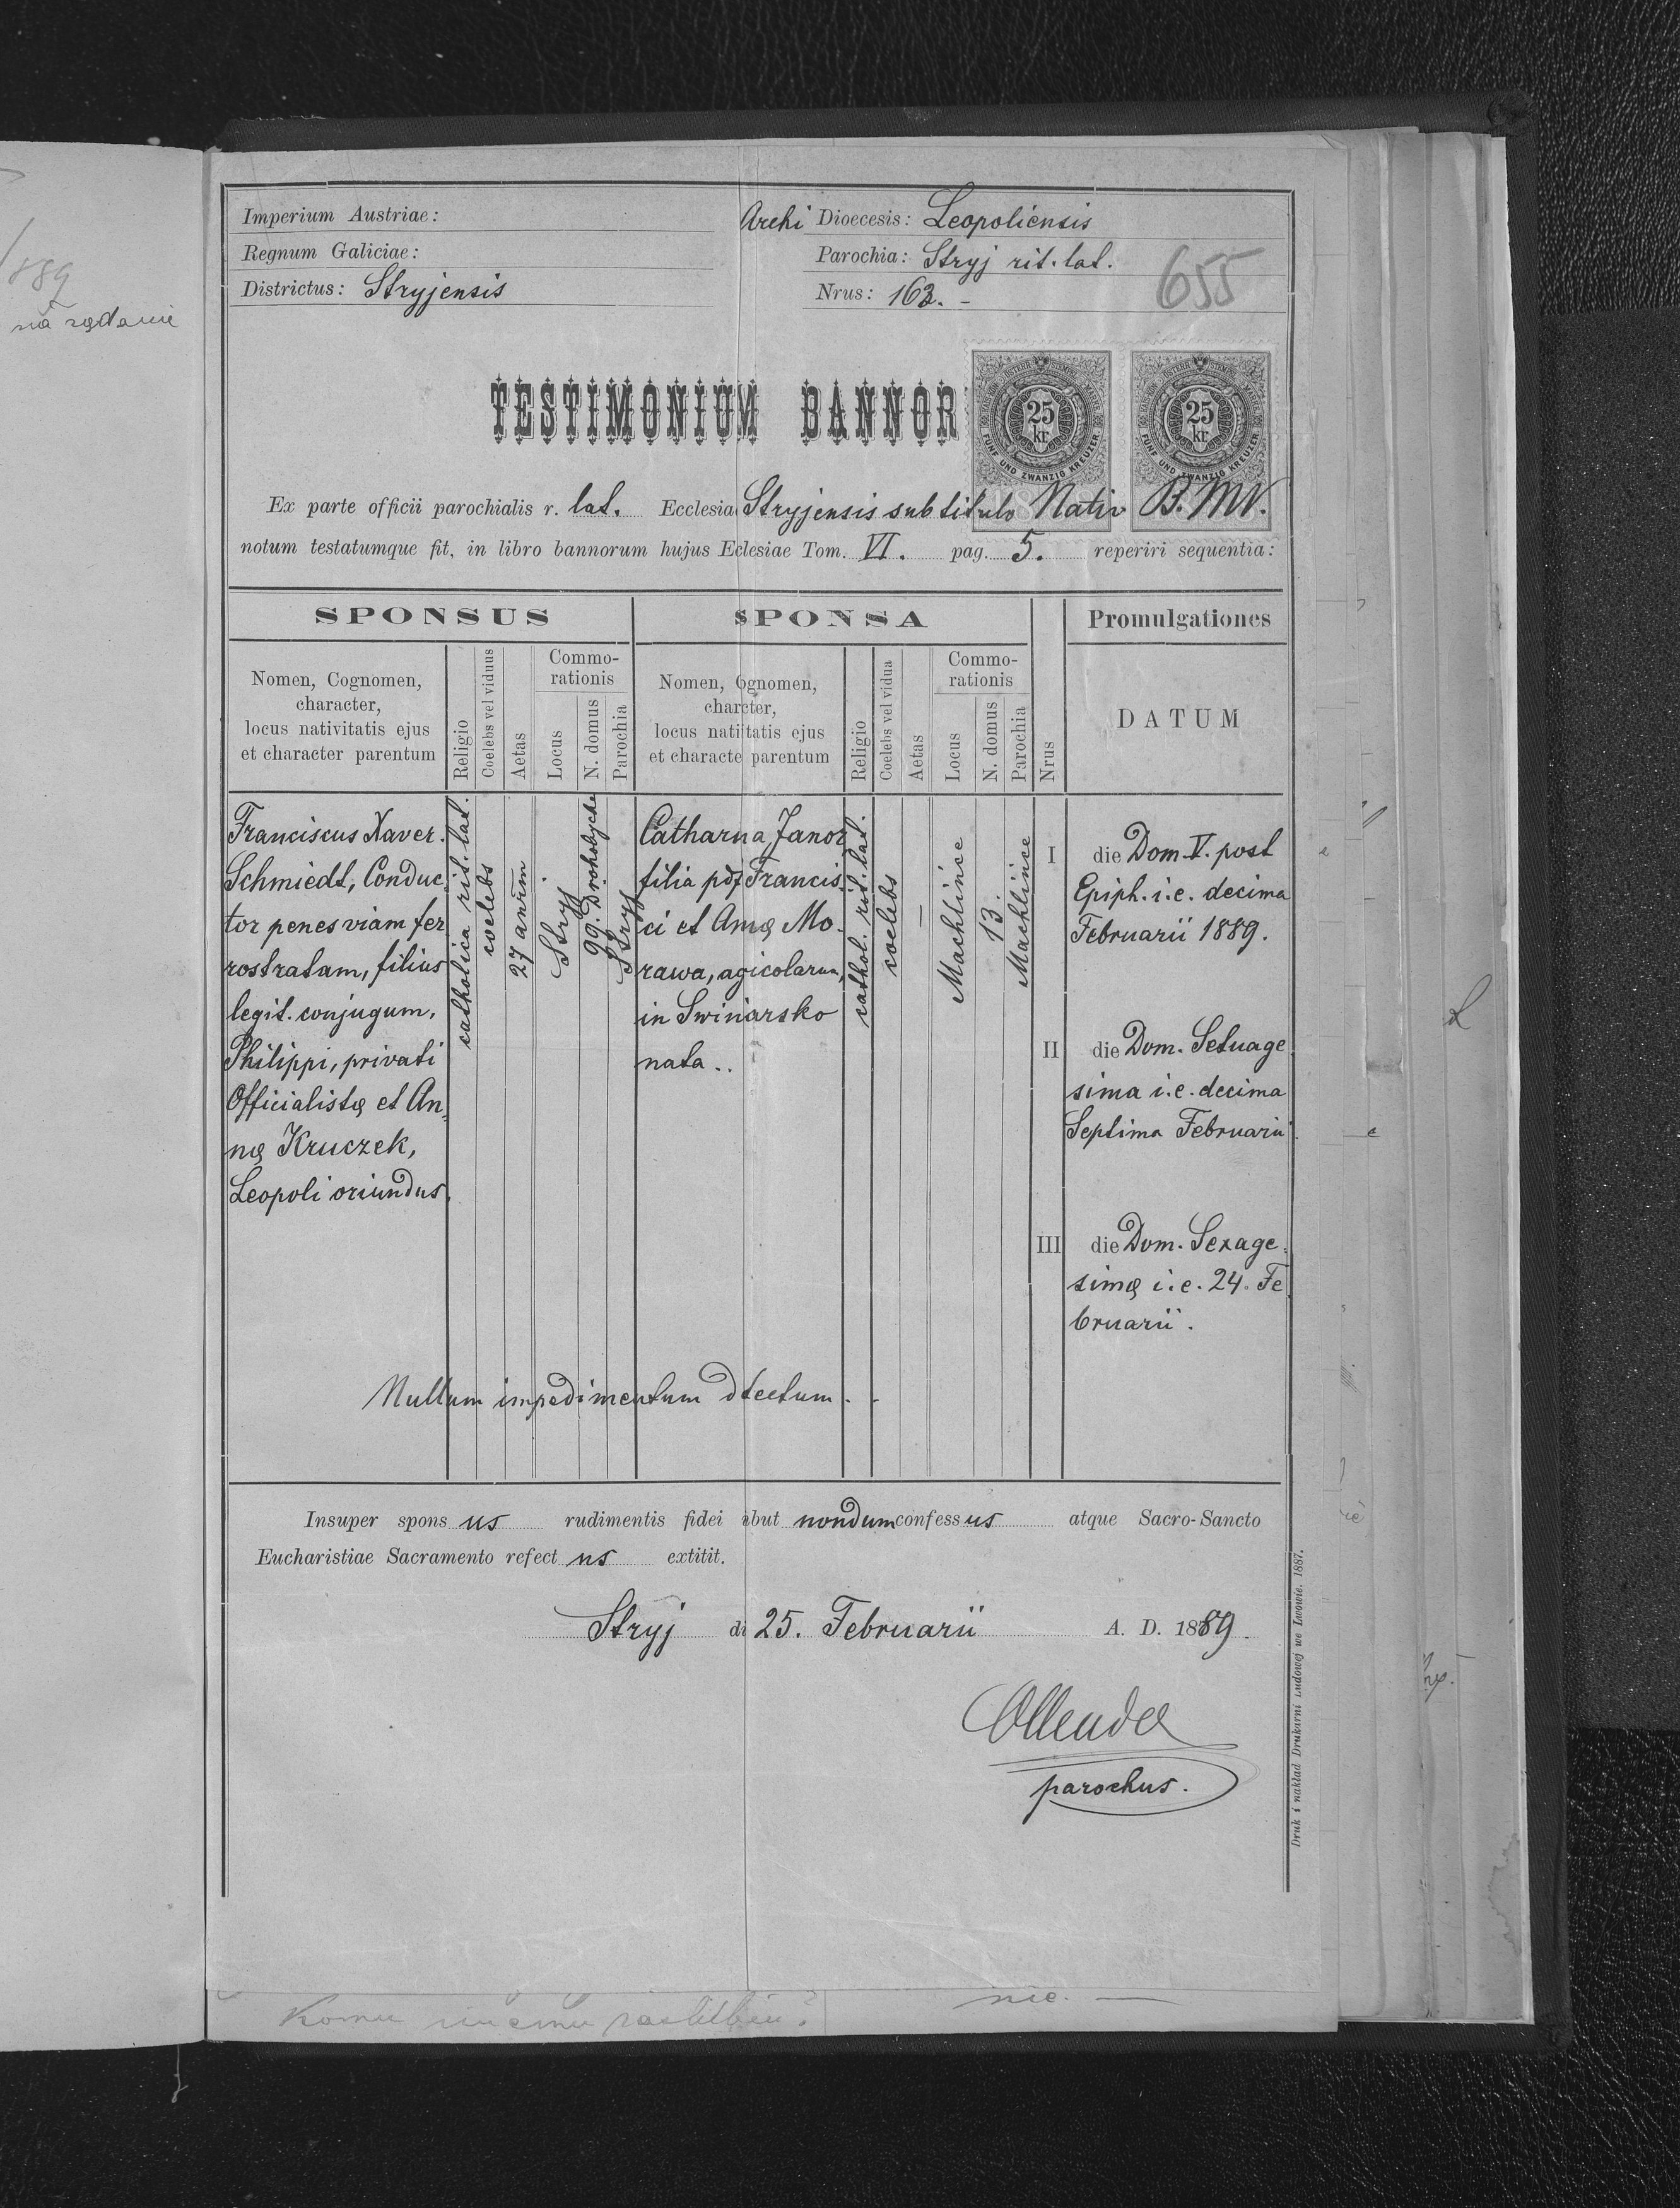 889
na żądanie
Imperium Austriae:
Archi Dioecesis: Leopoliensis
Regnum Galiciae:
Parochia: Stryj rit. lat.
655
Districtus: Stryjensis
Nrus: 163. -
TESTIMONIUM BANNOR
25 kr
FÜNF UND ZWANZIG KREUZER
25 kr
FÜNF UND ZWANZIG KREUZER
Ex parte officii parochialis r. lat. Ecclesia Stryjensis sub titulo Nativ B. MV.
notum testatumque fit, in libro bannorum hujus Eclesiae Tom. VI. pag. 5. reperiri sequentia:
SPONSUS
SPONSA
Promulgationes
Nomen, Cognomen,
character,
locus nativitatis ejus
et character parentum
Religio
Coelebs vel viduus
Aetas
Commo-
rationis
Locus
N. domus
Parochia
Nomen, ognomen,
charcter,
locus natitatis ejus
et characte parentum
Religio
Coelebs vel vidua
Aetas
Commo-
rationis
Locus
N. domus
Parochia
Nrus
DATUM
Franciscus Xaver.
Schmiedt, Conduc
tor penes viam fer
rostratam, filius
legit. conjugum,
Philippi, privati
Officialistæ et An,
næ Kruczek,
Leopoli oriundus.
catholica rit. lat.
coelebs
27 annm
Stryj.
99. Drohobycka
Stryj
Catharna Janor
filia pdf Francis
ci et Annæ Mo
rawa, agicolarum,
in Swiniarsko
nata..
cathol. rit. lat.
coelebs
—
Machlinice
13.
Machlinice
I die Dom. V. post
Epiph. i. e. decima
Februarii 1889.
II die Dom. Setuage
sima i. e. decima
Septima Februarii
III die Dom. Sexage
simæ i. e. 24. Fe
bruarii.
Nullum impedimentum dtectum. .
Insuper spons us rudimentis fidei ibut nondum confess us atque Sacro-Sancto
Eucharistiae Sacramento refect us extitit.
Stryj di 25. Februarii A. D. 1889.
parochus.
Druk i nakład Drukarni Ludowej we Lwowie. 1887.
Komu
nie. —